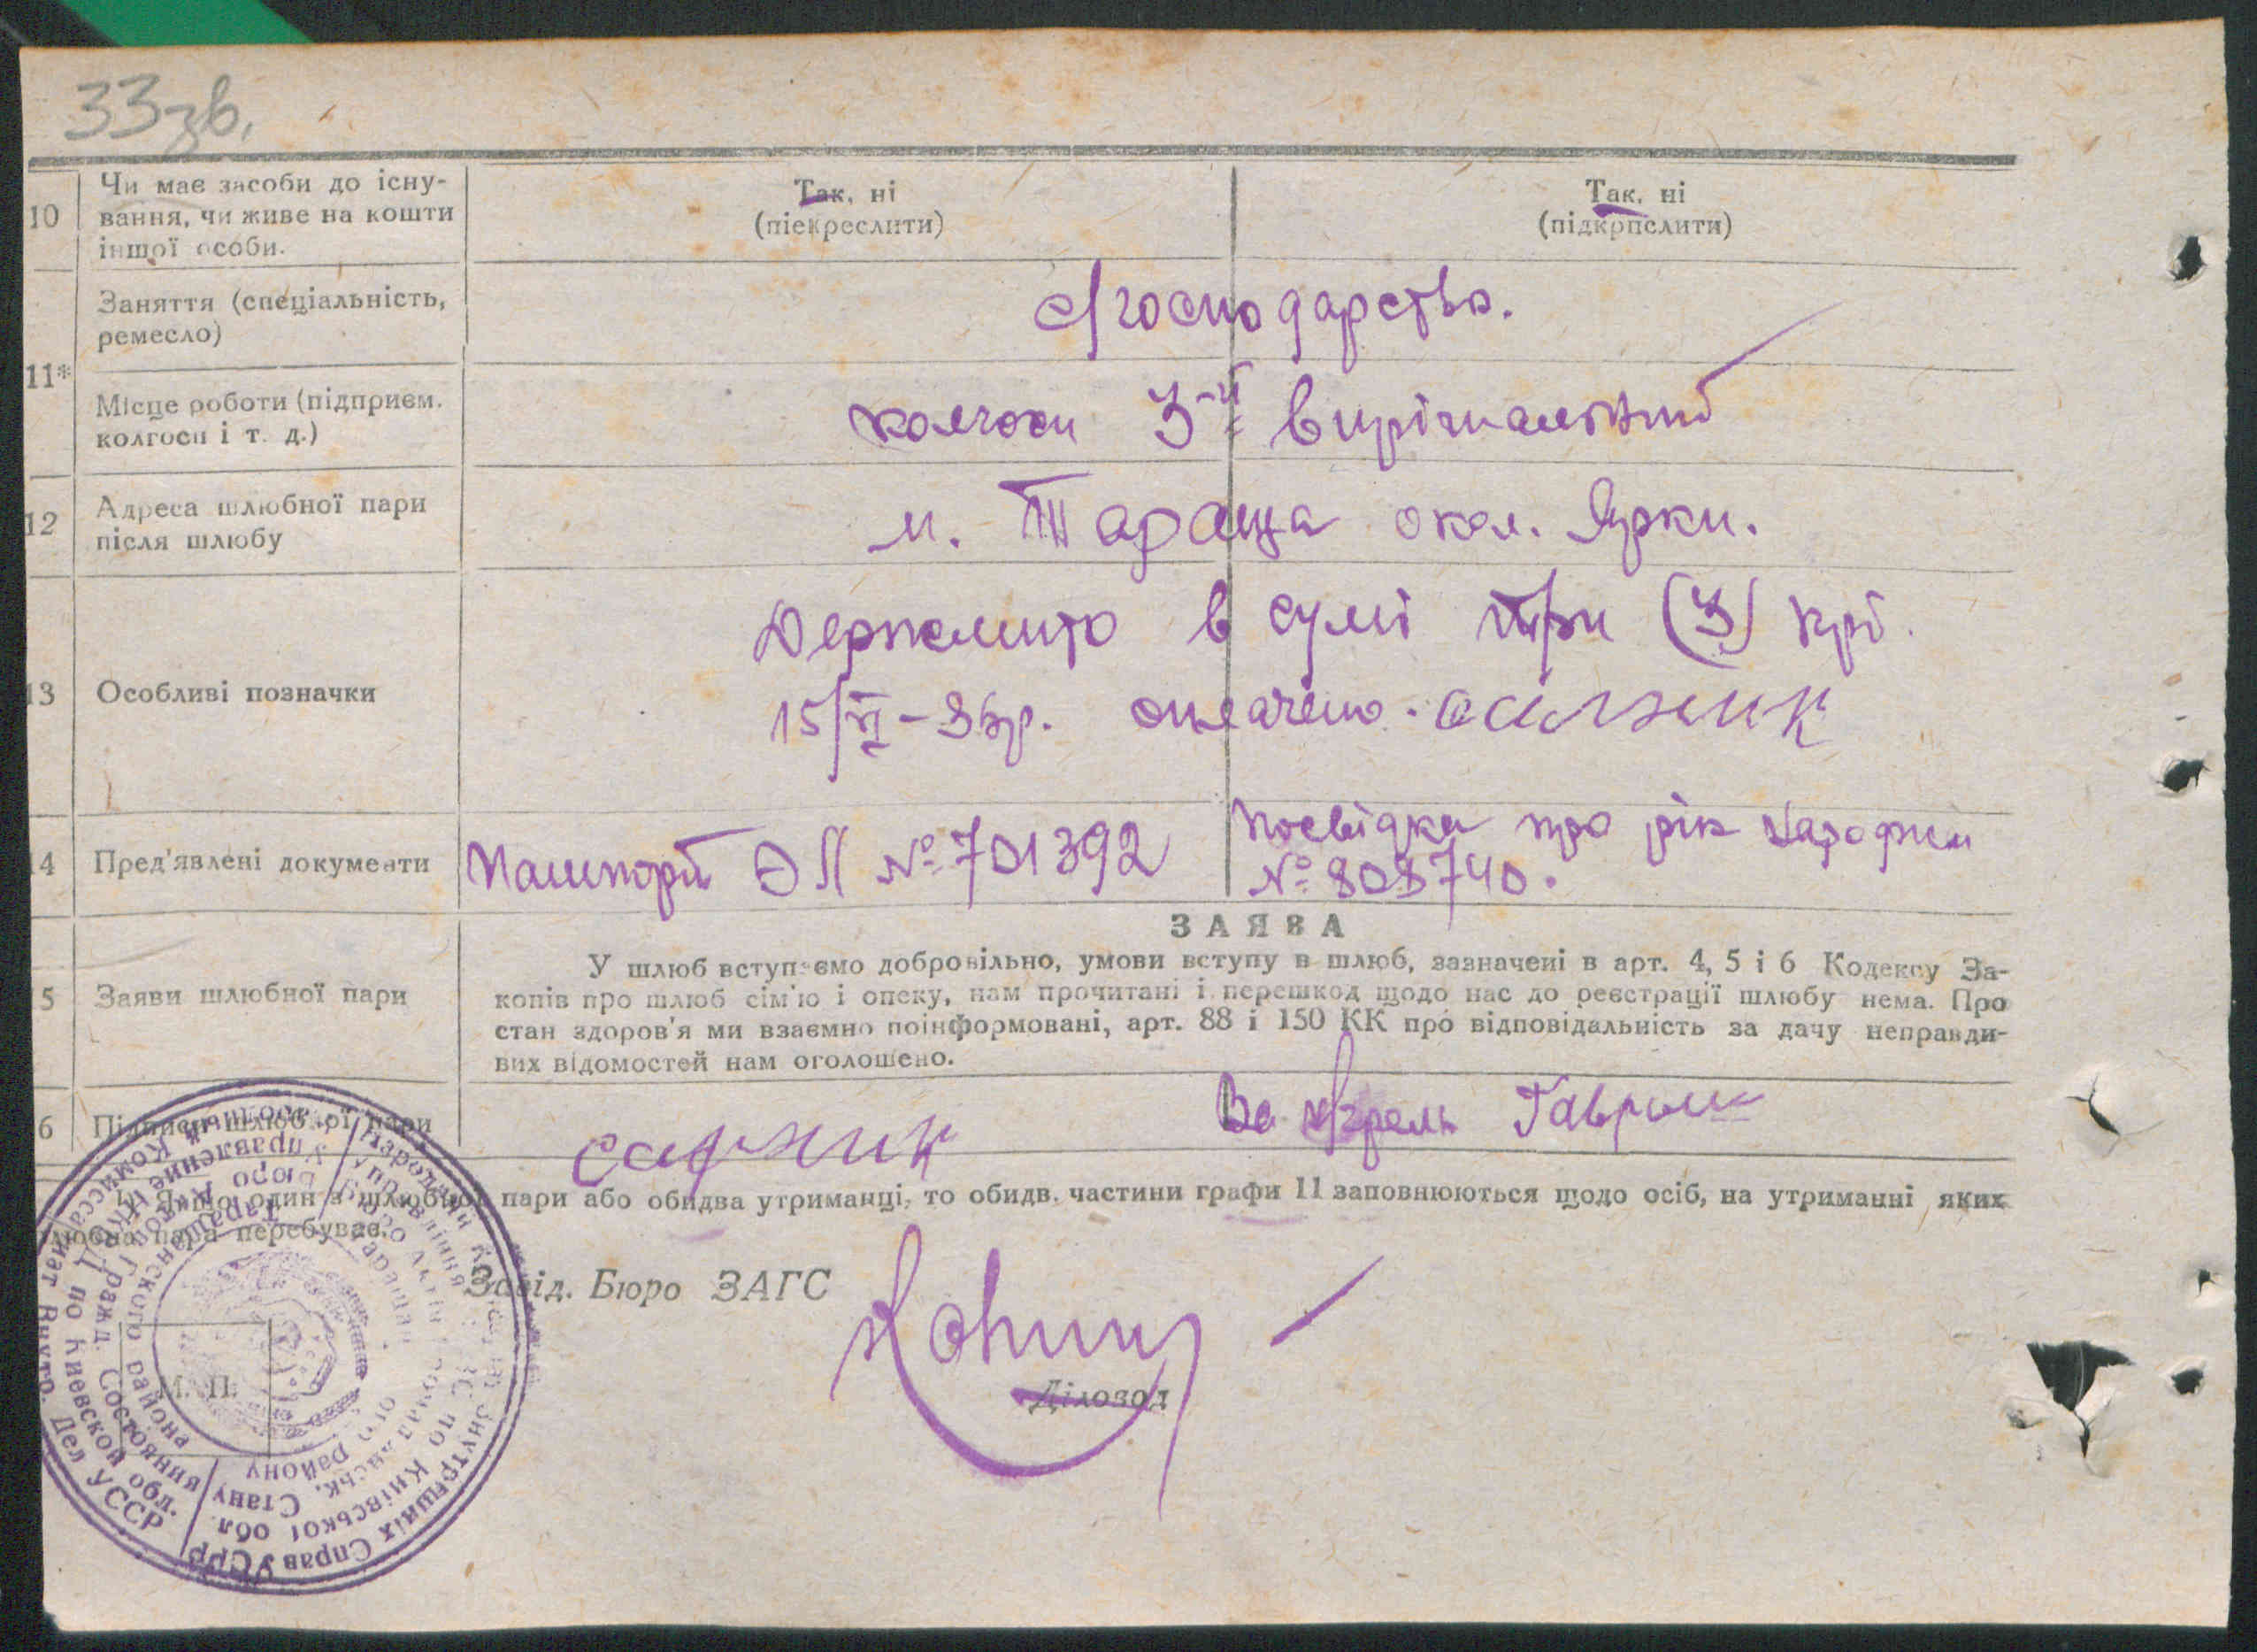 33зв.
10
Чи має засоби до існу-
вання, чи живе на кошти
іншої особи.
Так, ні
(піекреслити)
Так, ні
(підкрпслити)
11*
Заняття (спеціальність,
ремесло)
с/господарство.
Місце роботи (підприєм.
колгосп і т. д.)
колгосп 3-й вирішальний
12
Адреса шлюбної пари
після шлюбу
м. Тараща окол. Ярки.
13
Особливі позначки
Держмито в сумі три (3) крб.
15/VI-36р. оплачено.
14
Пред'явлені документи
Пашпорт ЭЛ № 701392
Посвідка про рік народжен
№ 808740.
ЗАЯВА
5
Заяви шлюбної пари
У шлюб вступаємо добровільно, умови вступу в шлюб, зазначені в арт. 4, 5 і 6 Кодексу За-
конів про шлюб сім'ю і опеку, нам прочитані і перешкод щодо нас до реєстрації шлюбу нема. Про
стан здоров'я ми взаємно поінформовані, арт. 88 і 150 КК про відповідальність за дачу неправди-
вих відомостей нам оголошено.
6
Підписи шлюбної пари
За Гаврыш
*) Якщо один з шлюбної пари або обидва утриманці, то обидв. частини графи 11 заповнюються щодо осіб, на утриманні яких
шлюбна пара перебуває.
Завід. Бюро ЗАГС
Діловод
М. П.
Комиссариат Внутр. Дел УССР
Управление НК по Киевской обл.
Бюро Актов Гражд. Состояния
Таращанского района
Внутрішніх Справ УСРР
Управління по Київської обл.
Стану
району